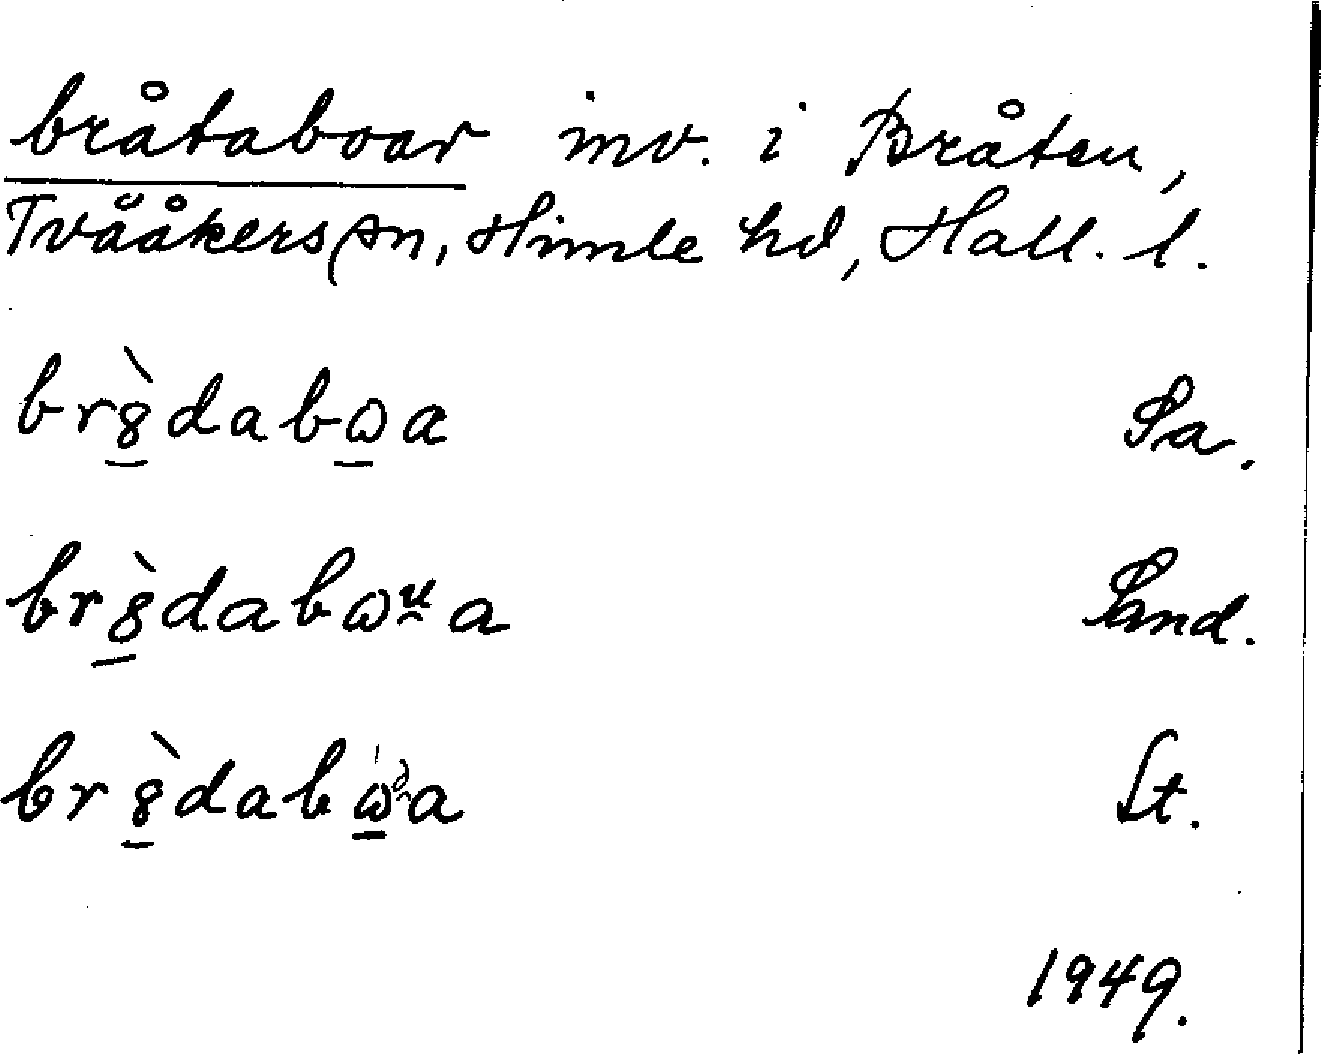 bråtaboar inv. i Bråten,
Tvååkers sn, Himle hd, Hall. l.
br8̲̀dabω̲a Sa.
br8̲̀dabωᵘ̯a Sand.
br8̲̀dabώ̲ᵊa St.
1949.